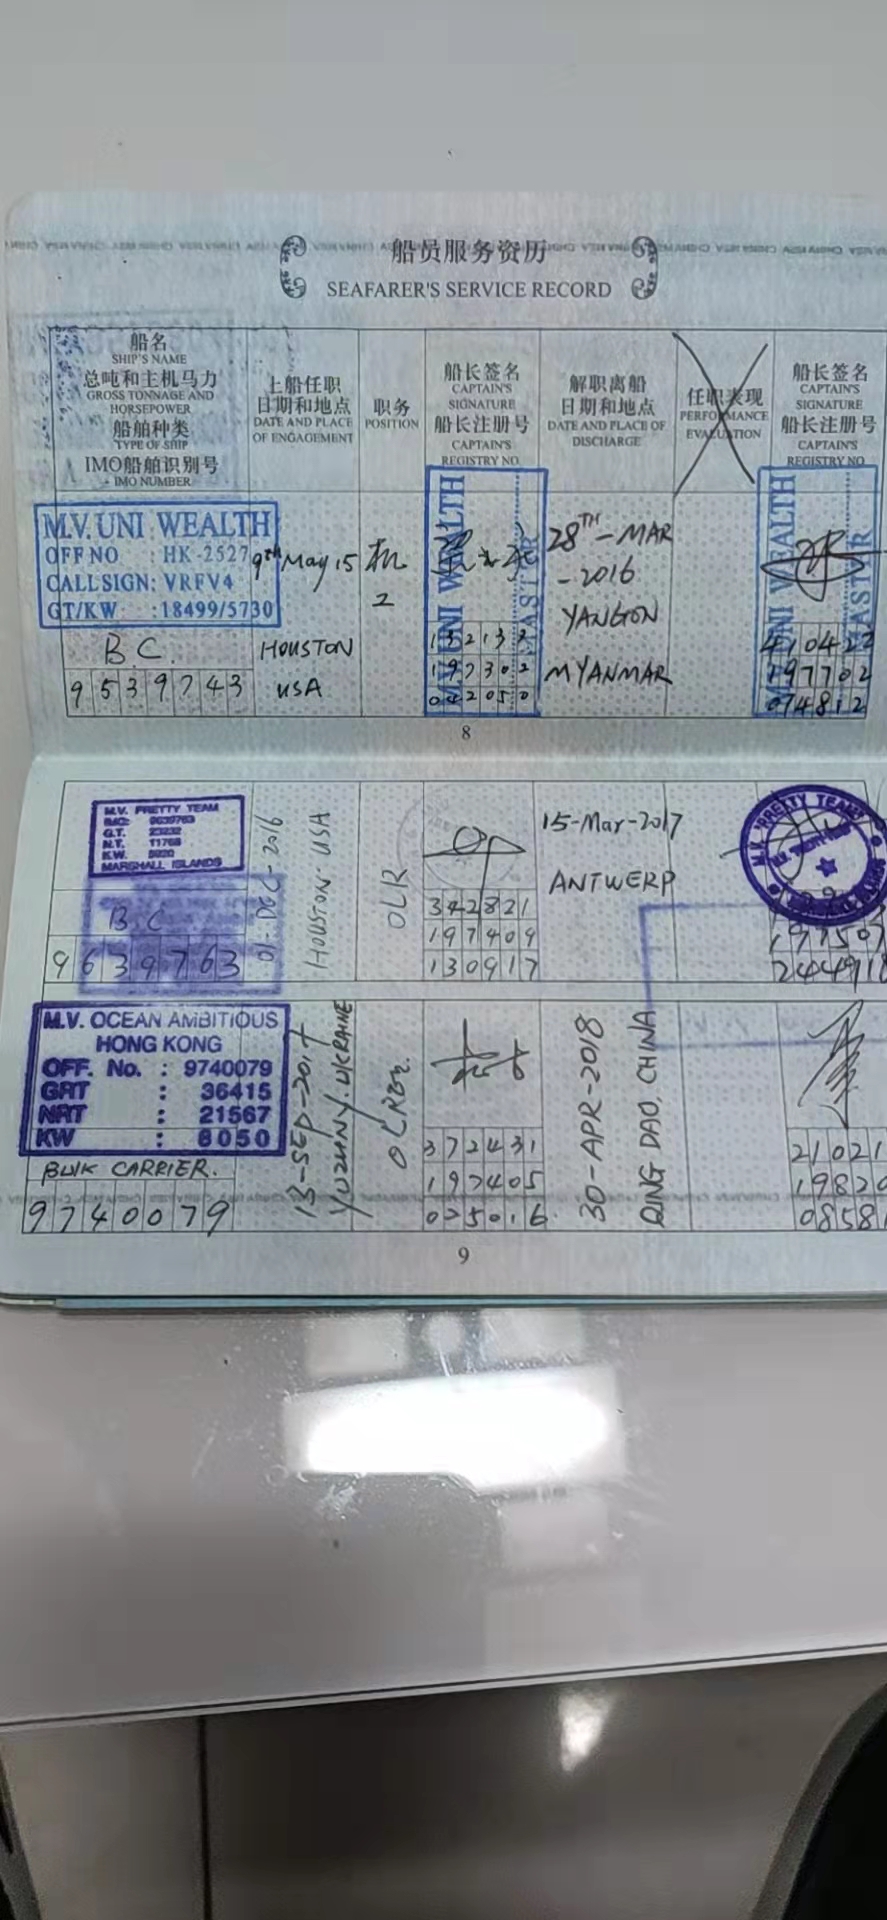 船员服务资历
SEAFARER'S SERVICE RECORD
船名
SHIP'S NAME
总吨和主机马力
GROSS TONNAGE AND
HORSEPOWER
船舶种类
TYPE OF SHIP
IMO船舶识别号
IMO NUMBER
上船任职
日期和地点
DATE AND PLACE
OF ENGAGEMENT
职务
POSITION
船长签名
CAPTAIN'S
SIGNATURE
船长注册号
CAPTAIN'S
REGISTRY NO.
解职离船
日期和地点
DATE AND PLACE OF
DISCHARGE
任职表现
PERFORMANCE
EVALUATION
船长签名
CAPTAIN'S
SIGNATURE
船长注册号
CAPTAIN'S
REGISTRY NO.
M.V. UNI WEALTH
OFF NO : HK-2527
CALL SIGN: VRFV4
GT/KW :18499/5730
B.C.
9539743
9th May, 15
HOUSTON
USA
机
2
MV UNI WEALTH
MASTER
132132
197302
042050
28TH-MAR
-2016
YANGON
MYANMAR
MV UNI WEALTH
MASTER
197702
074812
8
M.V. PRETTY TEAM
G.T.
N.T. 11768
K.W.
MARSHALL ISLANDS
B.C
9639763
01-DEC-2016
HOUSTON-USA
OLR
342821
197409
130917
15-Mar-2017
ANTWERP
M.V. PRETTY TEAM
M.V. OCEAN AMBITIOUS
HONG KONG
OFF. No. : 9740079
GRT : 36415
NRT : 21567
KW : 8050
BULK CARRIER.
9740079
13-SEP-2017
YUZHNY. UKRAINE
372431
197405
075016
30-APR-2018
QING DAO, CHINA
21021
19820
0858
9